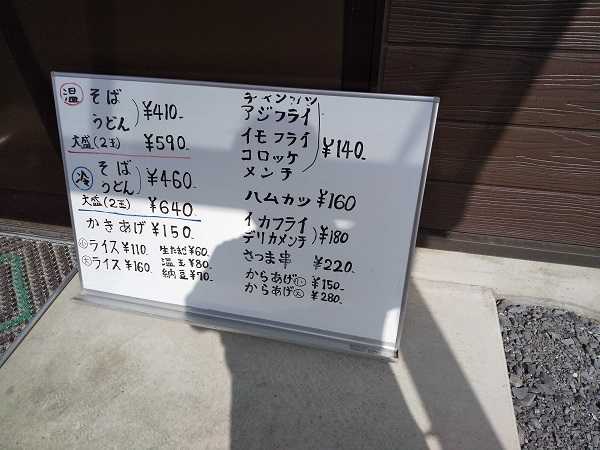 温 そば
うどん ¥410-
大盛(2玉) ¥590-
冷 そば
うどん ¥460-
大盛(2玉) ¥640-
かきあげ ¥150-
小 ライス ¥110 生たまご ¥60-
大 ライス ¥160- 温玉 ¥80-
納豆 ¥70-
チキンカツ
アジフライ
イモフライ ¥140-
コロッケ
メンチ
ハムカツ ¥160
イカフライ
デリカメンチ ¥180
さつま串 ¥220-
からあげ 小 ¥150-
からあげ 大 ¥280-